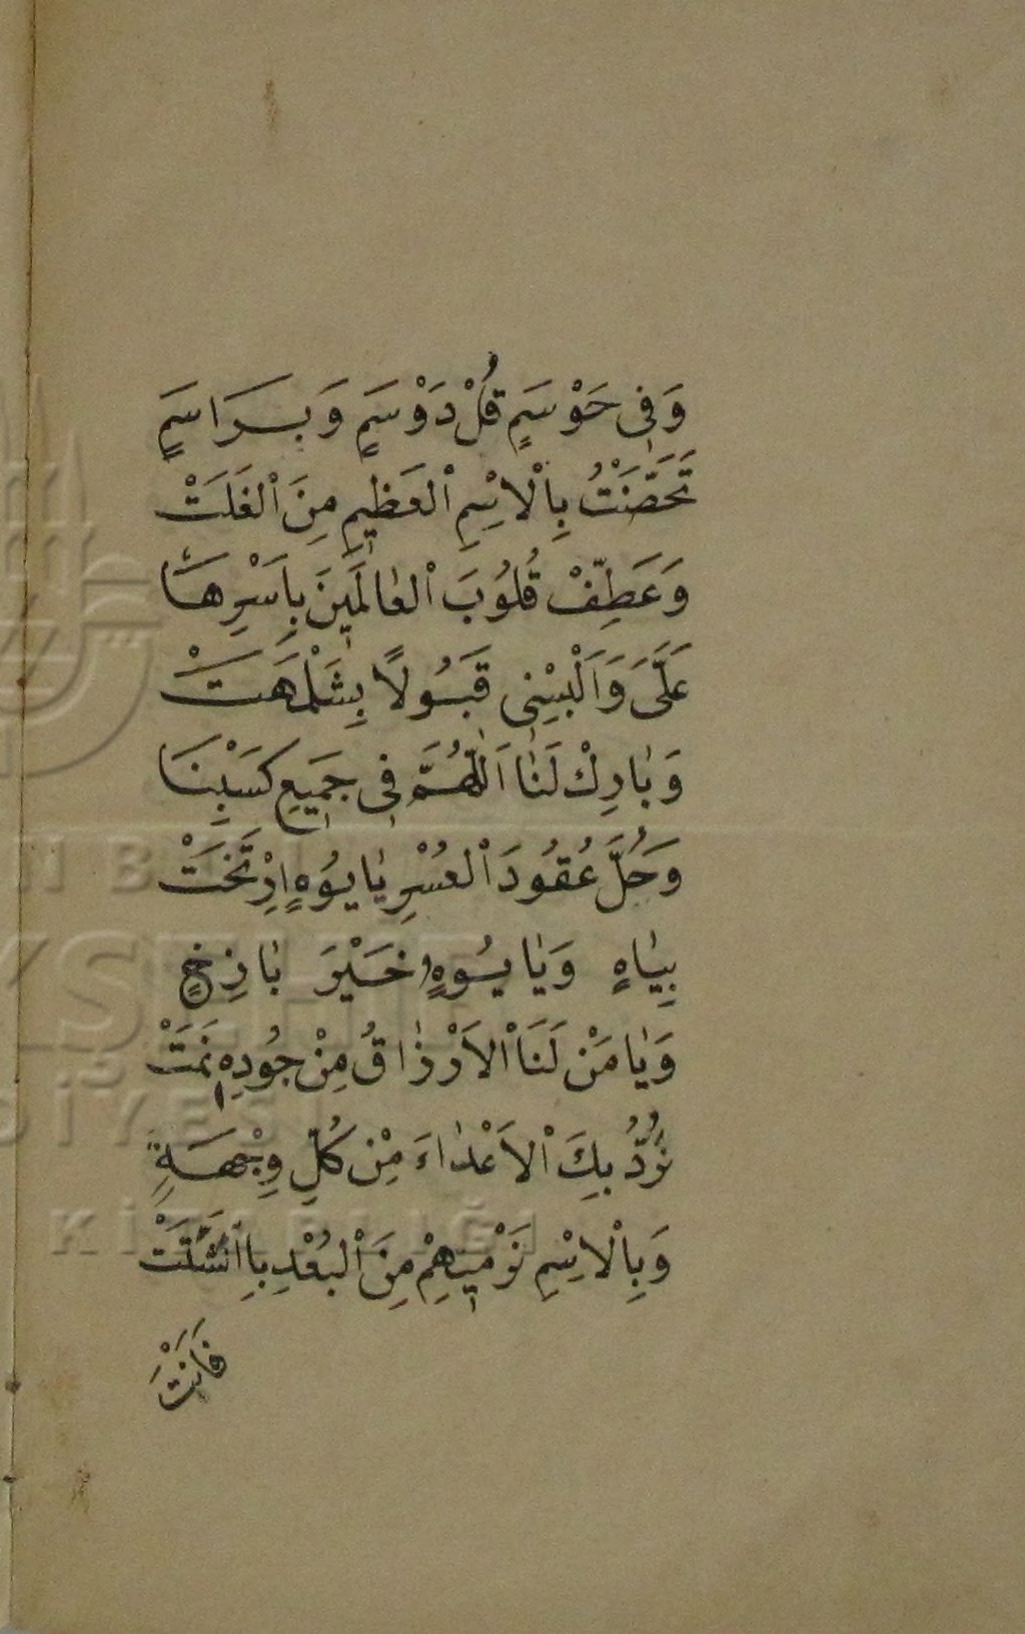 وَفِى حَوْسَمٍ قُلْ دَوْسَمٍ وَبَرَاسَمٍ
تَحَصَّنْتُ بِالْاِسْمِ الْعَظِيمِ مِنَ الْغَلَتْ
وَعَطِّفْ قُلُوبَ الْعَالَمِينَ بِاَسْرِهَا
عَلَىَّ وَاَلْبِسْنِى قَبُولاً بِشَلْمَهَتْ
وَبَارِكْ لَنَا اَللّٰهُمَّ فِى جَمِيعِ كَسْبِنَا
وَحُلَّ عُقُودَ الْعُسْرِ يَا يُوهٍ اِرْتَخَتْ
بِيَاهٍ وَيَا يُوهٍ خَيْرَ بَازِخٍ
وَيَا مَنْ لَنَا الْاَرْزَاقُ مِنْ جُودِهِ نَمَتْ
نَرُدُّ بِكَ الْاَعْدَاءَ مِنْ كُلِّ وِجْهَةٍ
وَبِالْاِسْمِ نَرْمِيهِمْ مِنَ الْبُعْدِ بِا
فَاَنْتَ
KİTAPLIĞI